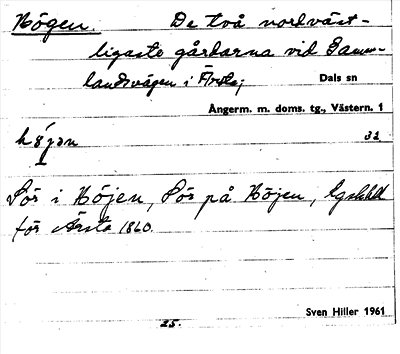 Högen. De två nordväst-
ligaste gårdarna vid Gamm-
landsvägen i Ärsta;
Dals sn
Ångerm. m. doms. tg., Västern. 1
32
Sör i Höjen, Sör på Höjen,
för Ärsta 1860.
Sven Hiller 1961
25.